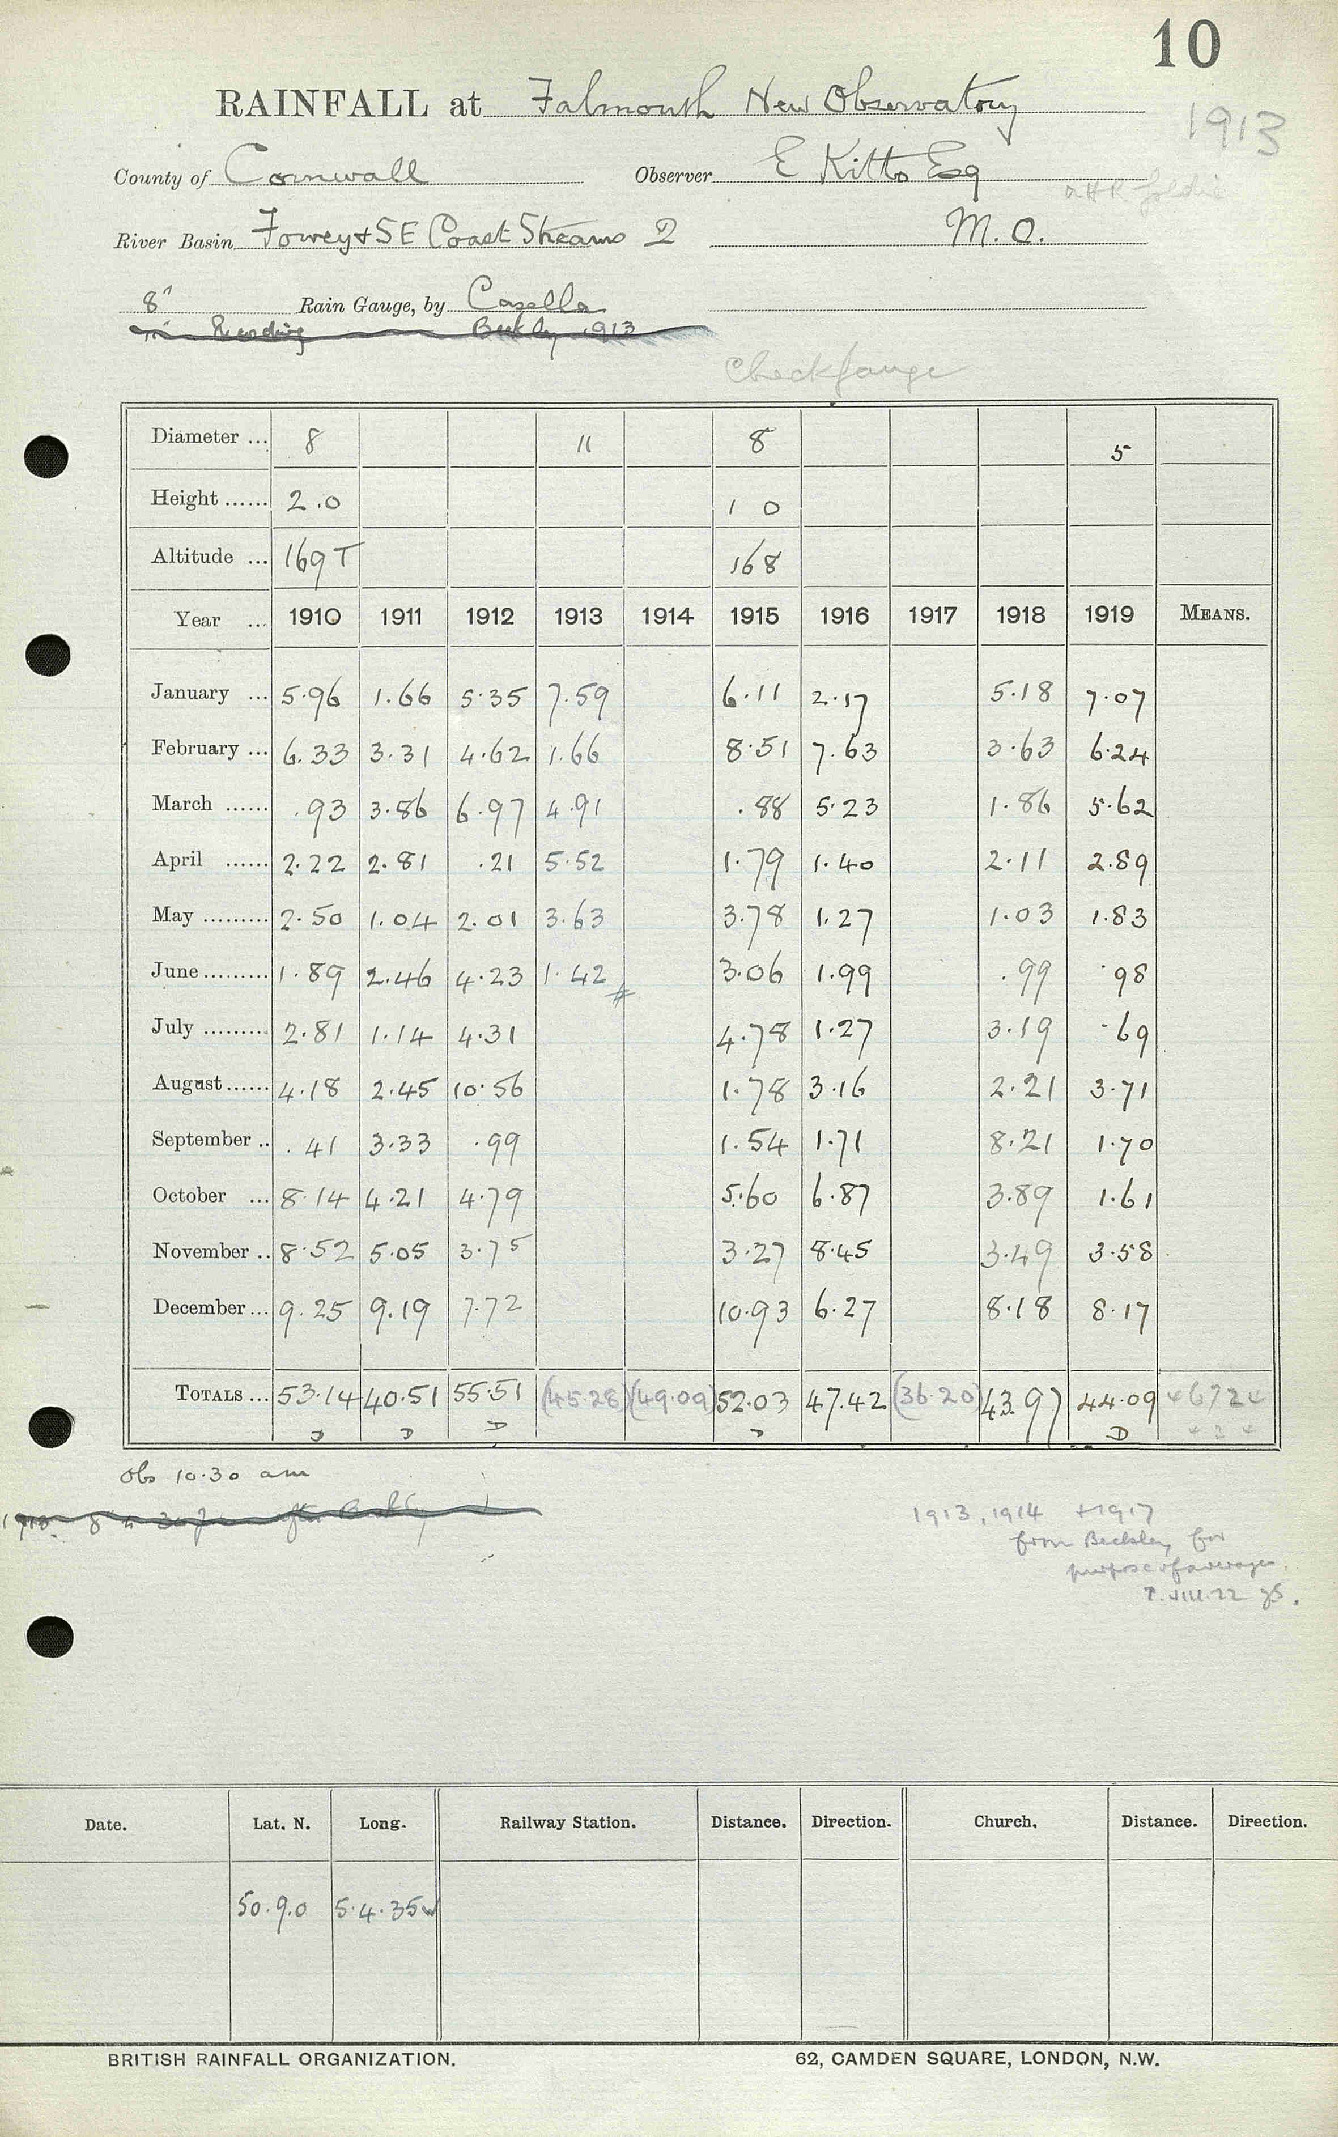 10
RAINFALL at Falmouth New Observatory
1913
County of Cornwall Observer E Kitto Esq
River Basin Fowey + SE Coast Streams 2 M. O.
8" Rain Gauge, by Casella
Beckley 1913
Check gauge
Diameter ... 8 11 8 5
Height ...... 2.0 1 0
Altitude ... 169 T 168
Year ... 1910 1911 1912 1913 1914 1915 1916 1917 1918 1919 MEANS.
January ... 5.96 1.66 5.35 7.59 6.11 2.17 5.18 7.07
February ... 6.33 3.31 4.62 1.66 8.51 7.63 3.63 6.24
March ...... .93 3.86 6.97 4.91 .88 5.23 1.86 5.62
April ...... 2.22 2.81 .21 5.52 1.79 1.40 2.11 2.89
May ......... 2.50 1.04 2.01 3.63 3.78 1.27 1.03 1.83
June ......... 1.89 2.46 4.23 1.42 3.06 1.99 .99 .98
July ......... 2.81 1.14 4.31 4.78 1.27 3.19 .69
August ...... 4.18 2.45 10.56 1.78 3.16 2.21 3.71
September .. .41 3.33 .99 1.54 1.71 8.21 1.70
October ... 8.14 4.21 4.79 5.60 6.87 3.89 1.61
November .. 8.52 5.05 3.75 3.27 8.45 3.49 3.58
December ... 9.25 9.19 7.72 10.93 6.27 8.18 8.17
TOTALS ... 53.14 40.51 55.51 (45.28) (49.09) 52.03 47.42 (36.20) 43.97 44.09 4672
D D D D D
Obs 10.30 am
1913, 1914 + 1917
from Beckley for
purpose of averages.
Date. Lat. N. Long. Railway Station. Distance. Direction. Church. Distance. Direction.
50.9.0 5.4.35 W
BRITISH RAINFALL ORGANIZATION. 62, CAMDEN SQUARE, LONDON, N.W.